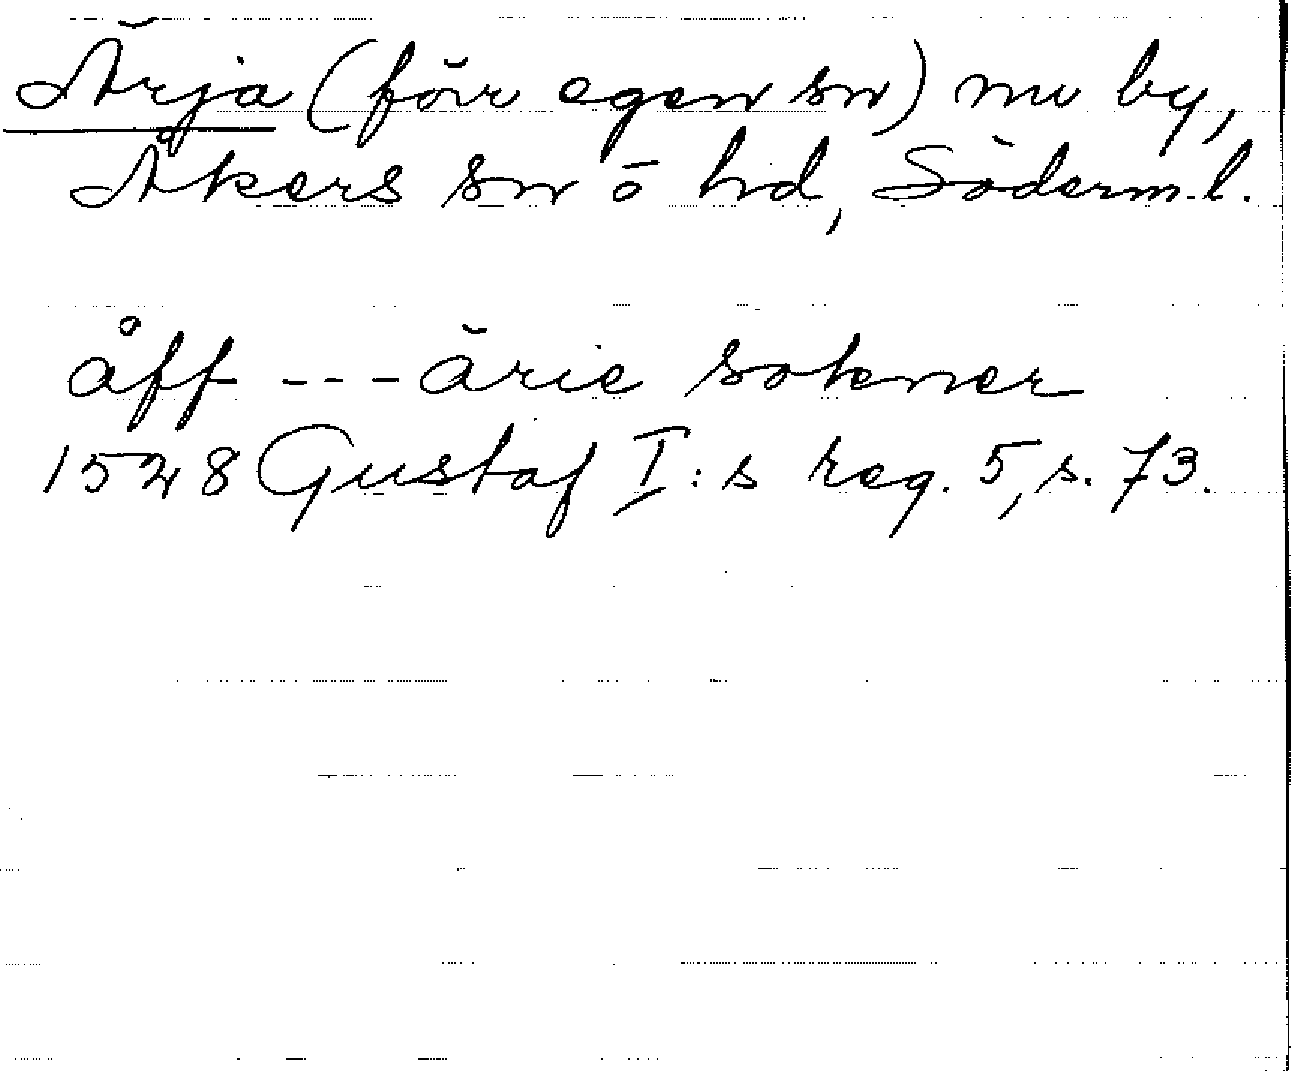 Ärja (förr egen sn) nu by,
Åkers sn o hd, Söderm.l.
åff --- ärie sokener
1528 Gustaf I:s reg. 5, s. 73.